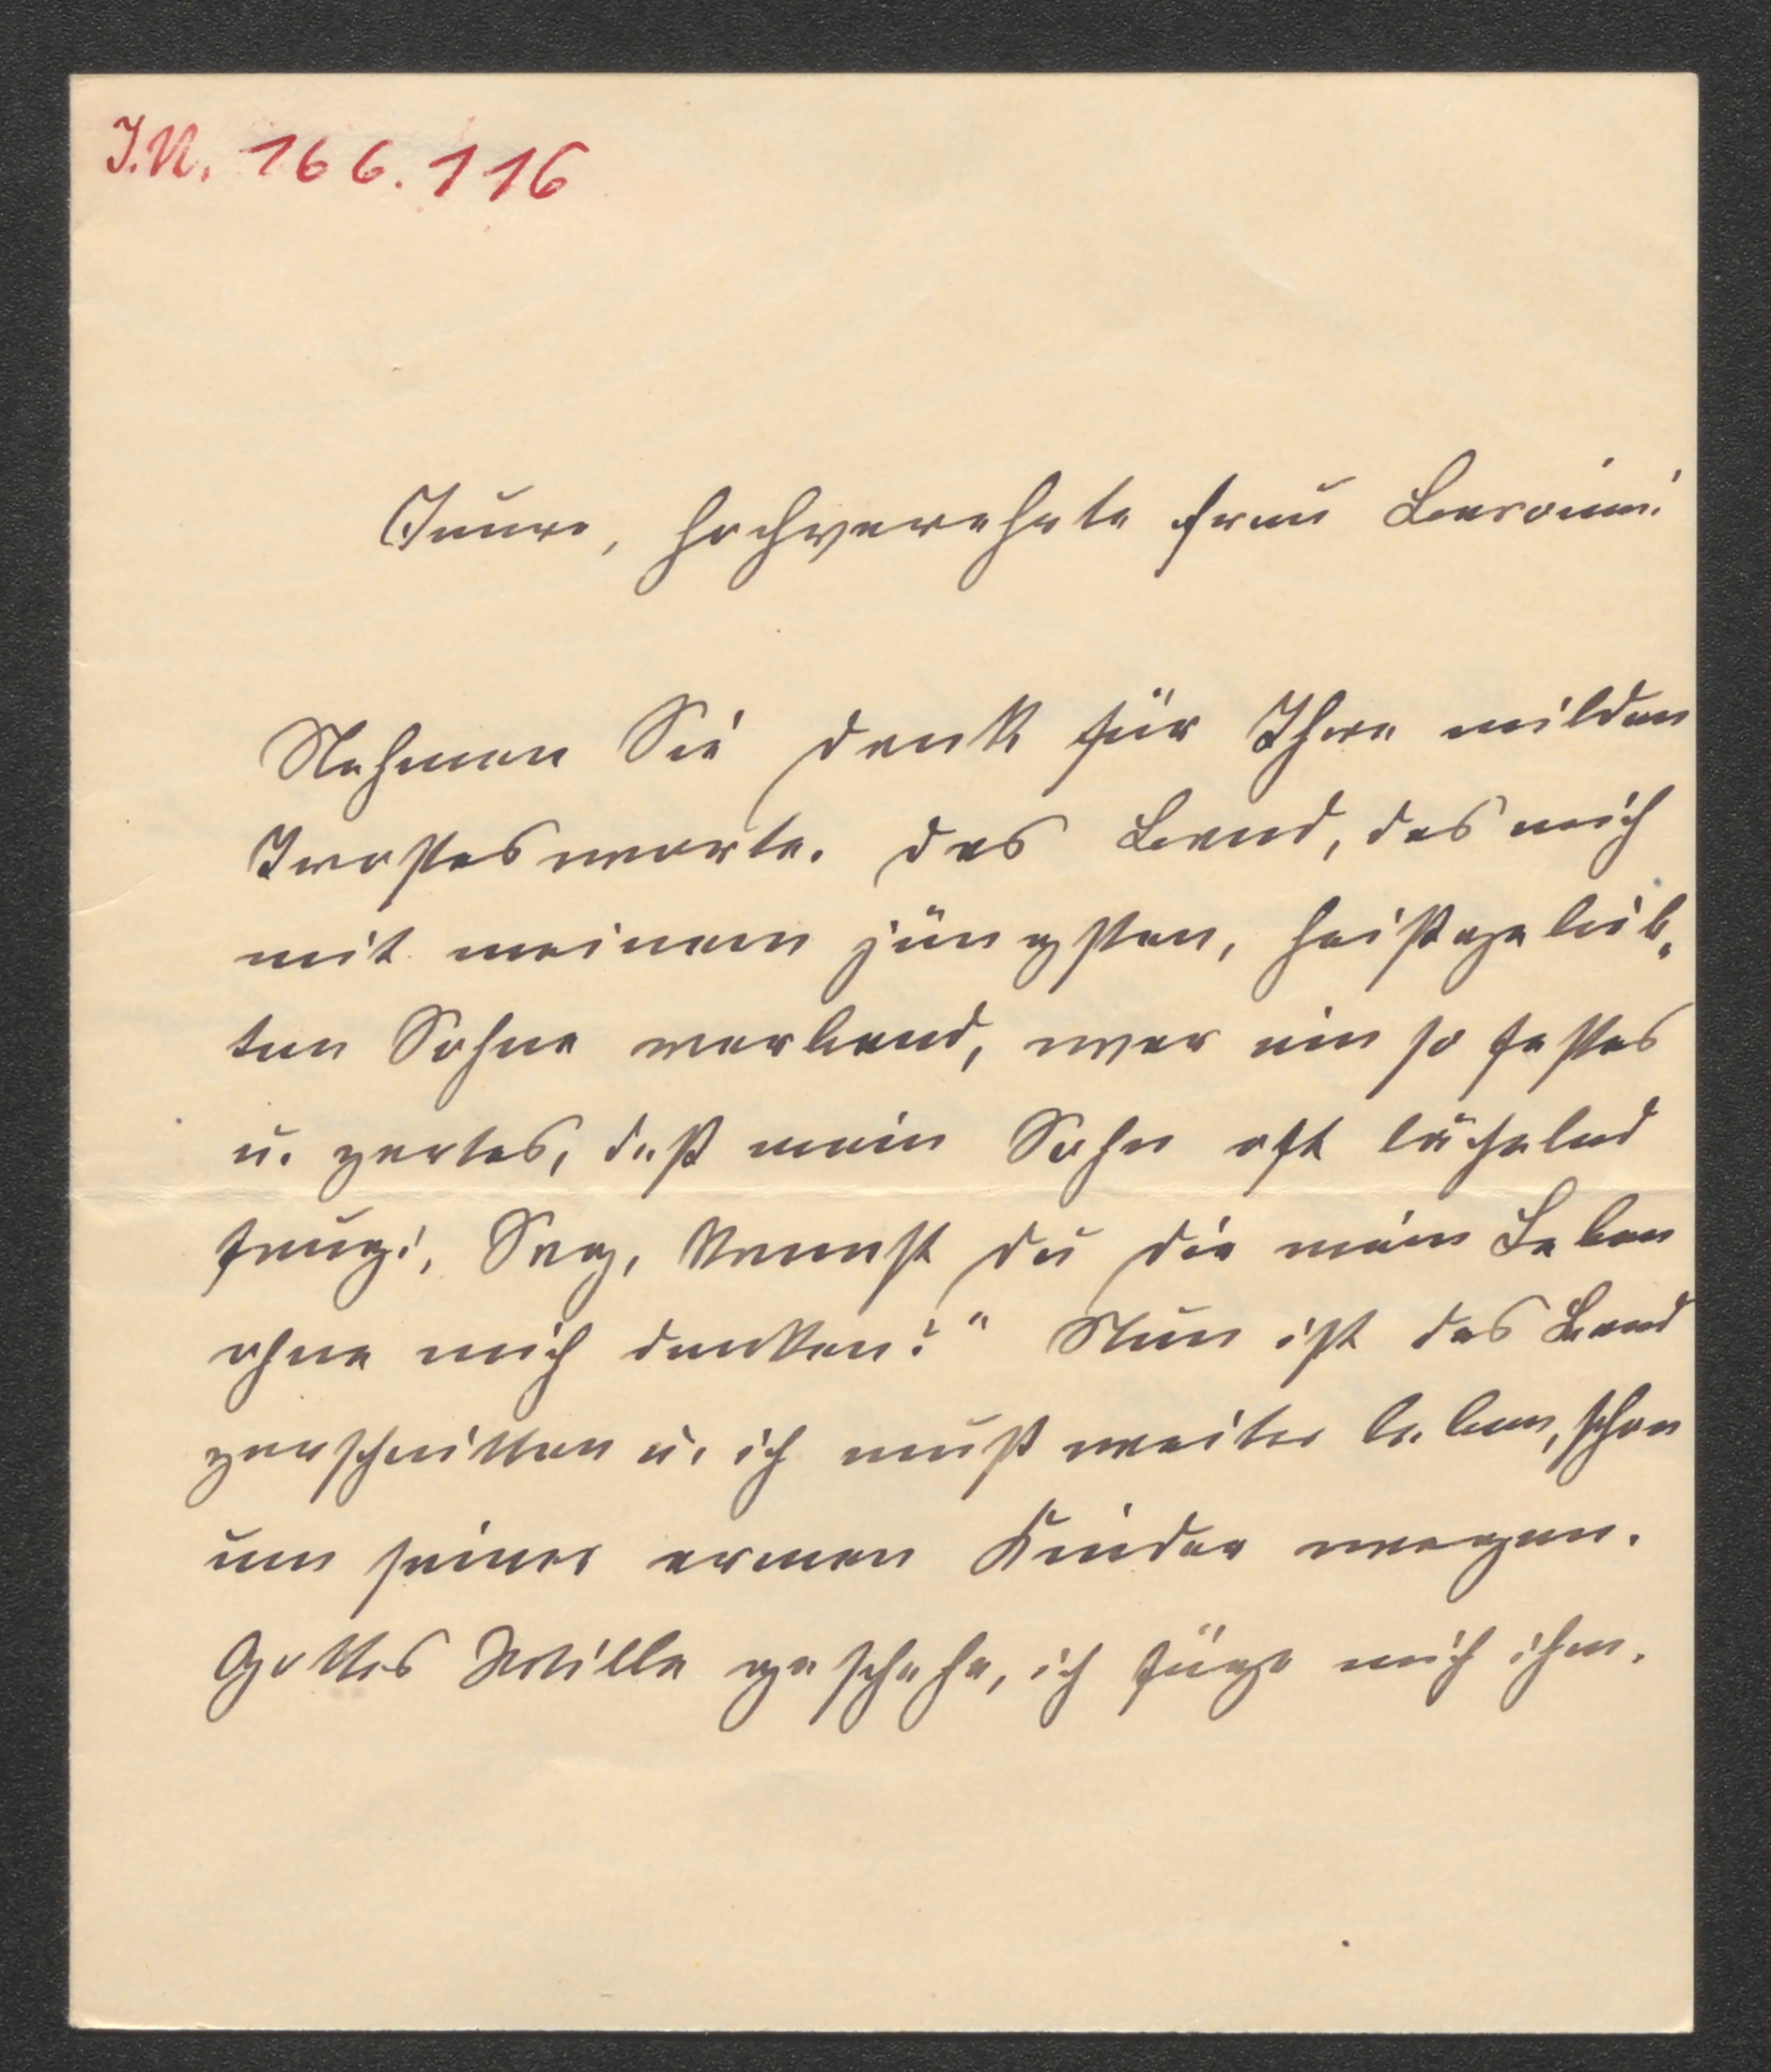 I.N. 166.116
Teure, hochverehrte Frau Baronin!
Nehmen Sie Dank für Ihre milden
Trostesworte. Das Band, das mich
mit meinem jüngsten, heißgelieb-
ten Sohne verband, war ein so festes
u. zartes, daß mein Sohn oft lächelnd
frug: „Sag, kannst du dir mein Leben
ohne mich denken?“ Nun ist das Band
zerschnitten u. ich muß weiter leben, schon
um seiner armen Kinder wegen.
Gottes Wille geschehe, ich füge mich ihm.